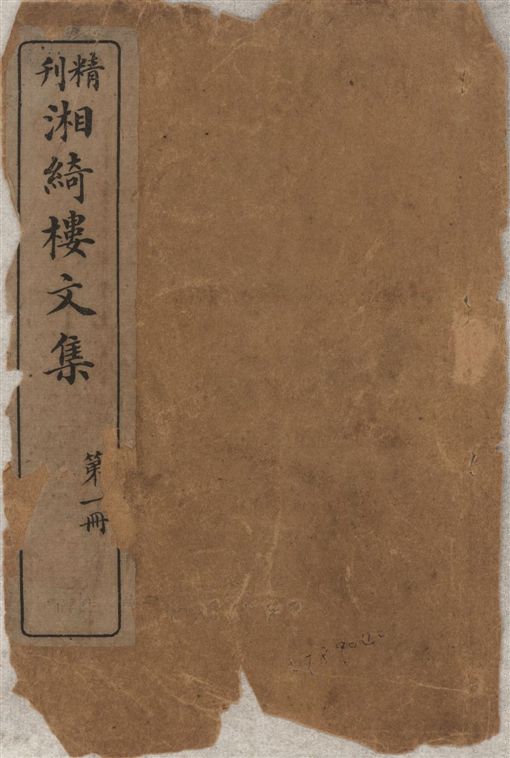 精刊
湘綺樓文集
第一冊